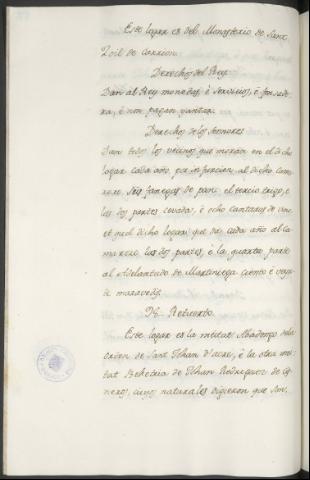 Este logar es del Monasterio de Sant
Zoil de Carrion.
Derechos del Rey
Dan al Rey monedas, è servicios, è fonsade
ra, è non pagan yantar.
Derechos de los Señores
Dan todos los vecinos que moran en el dicho
logar cada año, por infurcion al dicho Cama
rero, seis fanegas de pan: el tercio trigo, è
las dos partes cevada, è ocho cantaras de vino,
et quel dicho logar que da cada año al Ca
marero las dos partes, è la quarta parte
al Adelantado de Martiniega ciento è veyn
te maravedis.
Retuerto.
Este logar es la mitat Abadengo de la
Orden de Sant Jhan d'acre, è la otra mi
tat Behetria de Jhan Rodriguez de Cis
neros, cuyos naturales digeron que son,